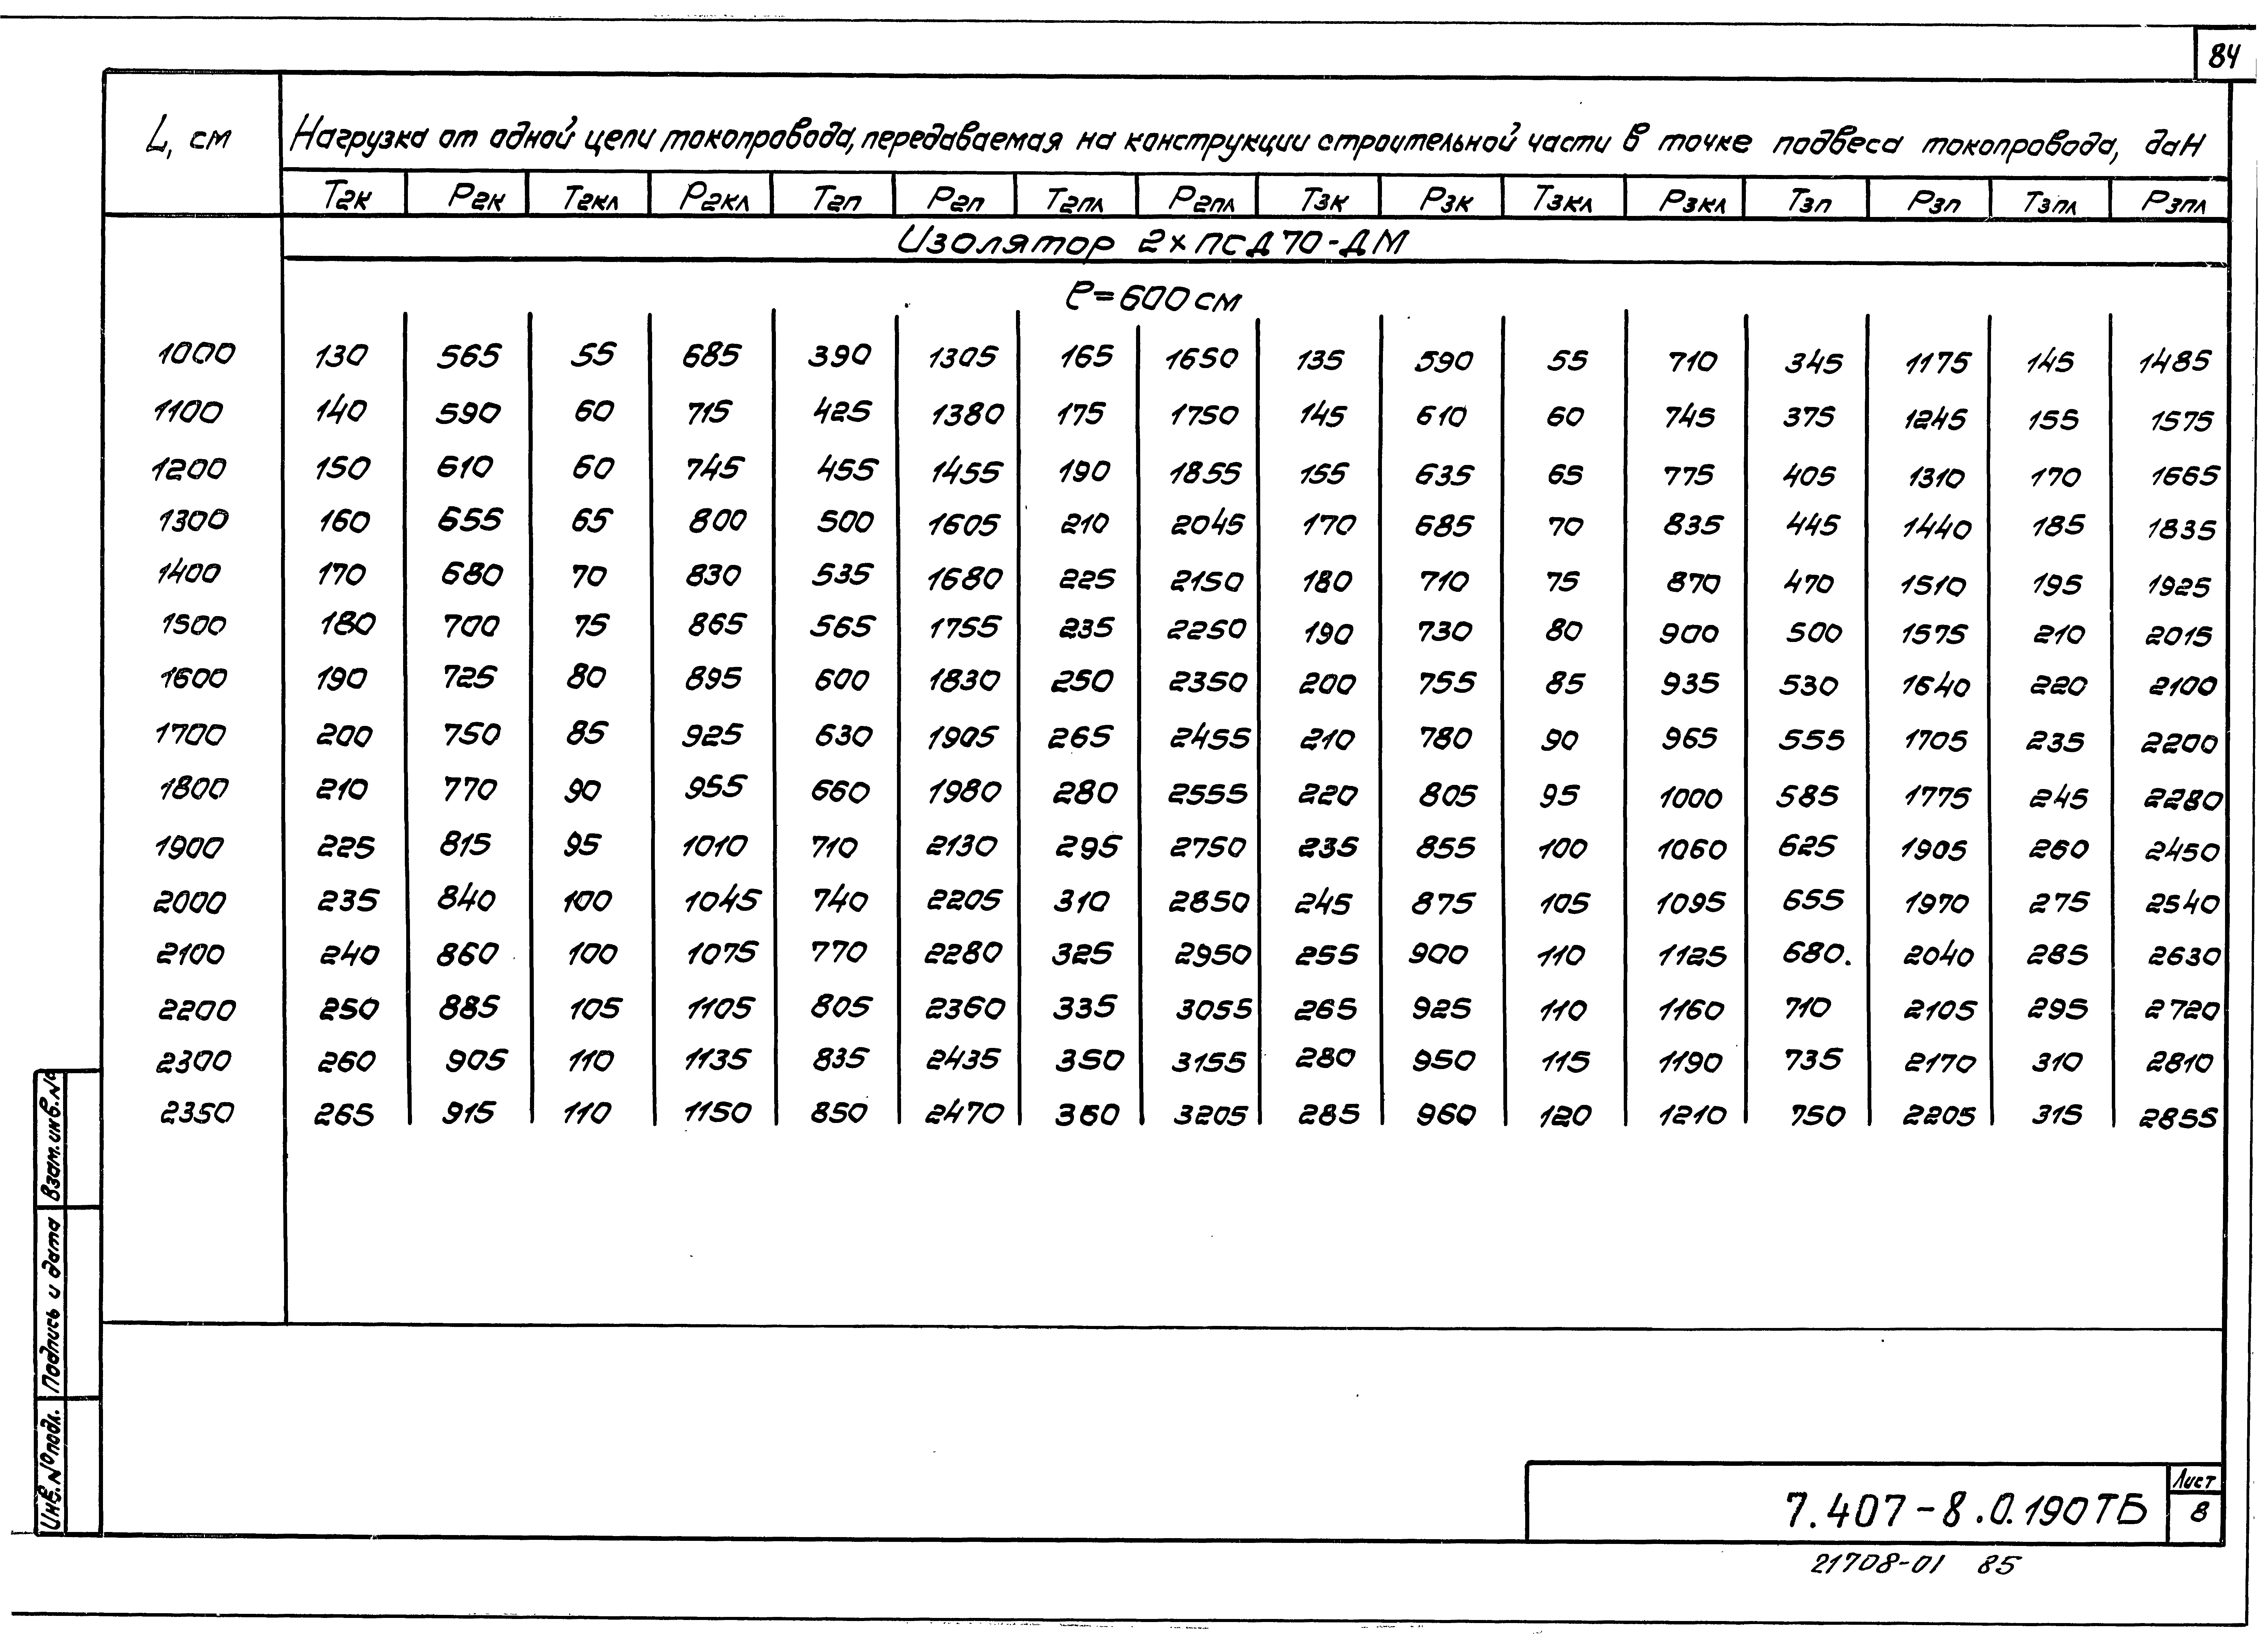 84
L, см Нагрузка от одной цепи токопровода, передаваемая на конструкции строительной части в точке подвеса токопровода, даН
Т2к Р2к Т2кл Р2кл Т2п Р2п Т2пл Р2пл Т3к Р3к Т3кл Р3кл Т3п Р3п Т3пл Р3пл
Изолятор 2×ПСД70-ДМ
ℓ=600 см
1000 130 565 55 685 390 1305 165 1650 135 590 55 710 345 1175 145 1485
1100 140 590 60 715 425 1380 175 1750 145 610 60 745 375 1245 155 1575
1200 150 610 60 745 455 1455 190 1855 155 635 65 775 405 1310 170 1665
1300 160 655 65 800 500 1605 210 2045 170 685 70 835 445 1440 185 1835
1400 170 680 70 830 535 1680 225 2150 180 710 75 870 470 1510 195 1925
1500 180 700 75 865 565 1755 235 2250 190 730 80 900 500 1575 210 2015
1600 190 725 80 895 600 1830 250 2350 200 755 85 935 530 1640 220 2100
1700 200 750 85 925 630 1905 265 2455 210 780 90 965 555 1705 235 2200
1800 210 770 90 955 660 1980 280 2555 220 805 95 1000 585 1775 245 2280
1900 225 815 95 1010 710 2130 295 2750 235 855 100 1060 625 1905 260 2450
2000 235 840 100 1045 740 2205 310 2850 245 875 105 1095 655 1970 275 2540
2100 240 860 100 1075 770 2280 325 2950 255 900 110 1125 680. 2040 285 2630
2200 250 885 105 1105 805 2360 335 3055 265 925 110 1160 710 2105 295 2720
2300 260 905 110 1135 835 2435 350 3155 280 950 115 1190 735 2170 310 2810
2350 265 915 110 1150 850 2470 360 3205 285 960 120 1210 750 2205 315 2855
Взам. инв. №
Подпись и дата
Инв. № подл.
7.407-8.0.190ТБ
Лист
8
21708-01 85